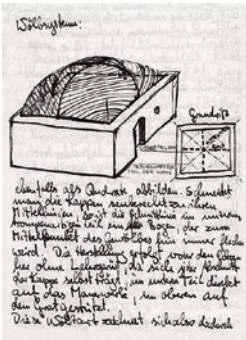 Wölbsystem:
Grundriß
TEIL DER WAND
ebenfalls als Quadrate, abbilden. Schneidet
man die Kappen senkrecht zu ihren
Mittellinien, so ist die Schnittlinie im unteren
Teil ein Bogen, der zum
Mittelpunkt des Gewölbes hin immer flacher
wird. Die Herstellung erfolgt
ohne Lehrgerüst, da sich jeder Abschnitt
der Kappe selbst trägt, im unteren Teil direkt
auf das Mauerwerk, im oberen auf
den Grat gestützt.
Diese Wölbart zeichnet sich also dadurch